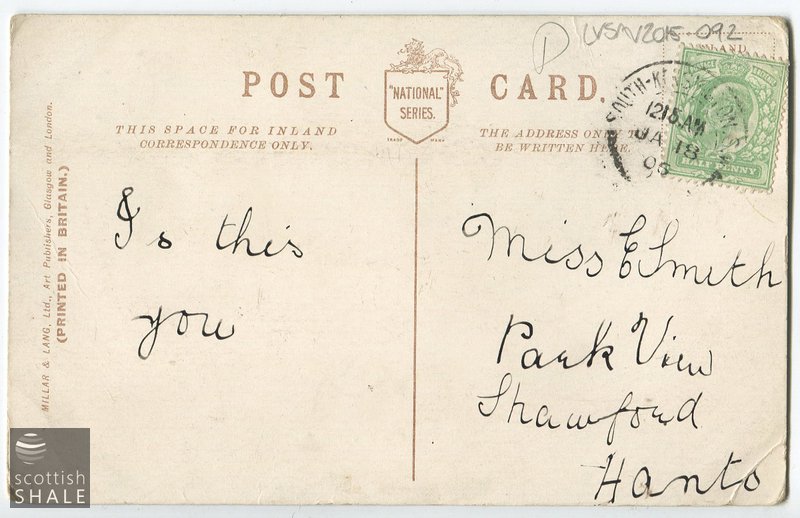 LVSAV2015 092
POST CARD.
"NATIONAL"
SERIES.
TRADE MARK
THIS SPACE FOR INLAND
CORRESPONDENCE ONLY.
THE ADDRESS ONLY TO
BE WRITTEN HERE.
INLAND
HALFPENNY
SOUTH-KENSINGTON
1215AM
JA 18
MILLAR & LANG, Ltd., Art Publishers, Glasgow and London.
(PRINTED IN BRITAIN.)
Is this
you
Miss E Smith
Park View
Shawford
Hants
scottish
SHALE